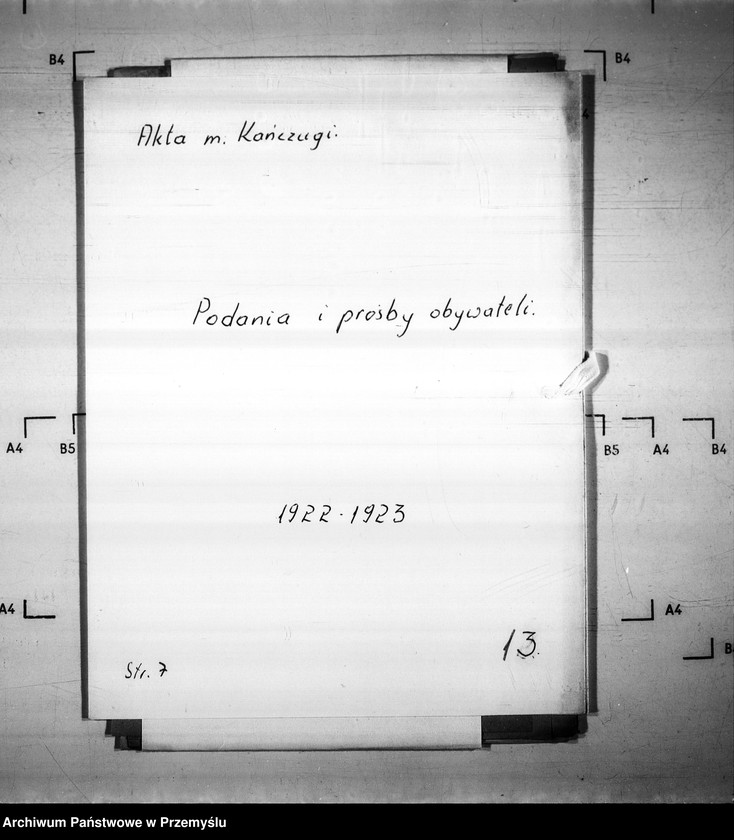 B4
B4
Akta m. Kańczugi.
Podania i prośby obywateli.
A4
B5
B5
A4
B4
1922-1923
A4
A4
13.
B4
Str. 7
Archiwum Państwowe w Przemyślu